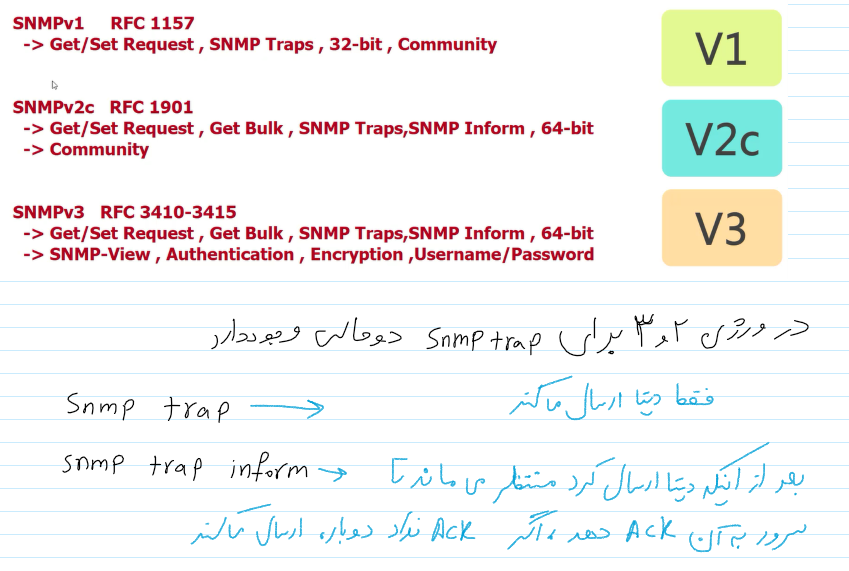 SNMPv1 RFC 1157
-> Get/Set Request , SNMP Traps , 32-bit , Community
V1
SNMPv2c RFC 1901
-> Get/Set Request , Get Bulk , SNMP Traps,SNMP Inform , 64-bit
-> Community
V2c
SNMPv3 RFC 3410-3415
-> Get/Set Request , Get Bulk , SNMP Traps,SNMP Inform , 64-bit
-> SNMP-View , Authentication , Encryption ,Username/Password
V3
در ورژن ۲ و ۳ برای Snmp trap دو حالت وجود دارد
Snmp trap → فقط دیتا ارسال می کند
snmp trap inform → بعد از اینکه دیتا ارسال کرد منتظر می ماند تا
سرور به آن ACK دهد ، اگر ACK نداد دوباره ارسال می کند